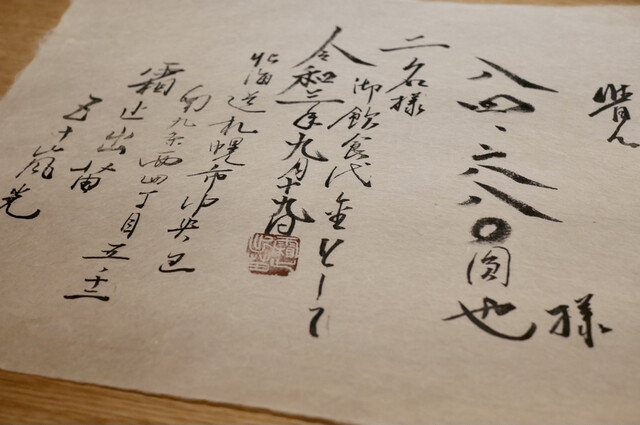 覚
様
八四、六八〇圓也
二名様
御飲食代金として
令和三年九月十九日
北海道札幌市中央区
南九条西四丁目五-十二
霜止出苗
五十嵐光